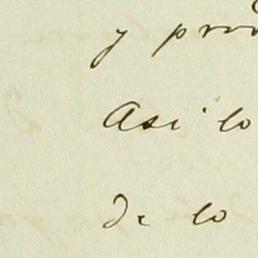 y pro
Asi lo
de lo